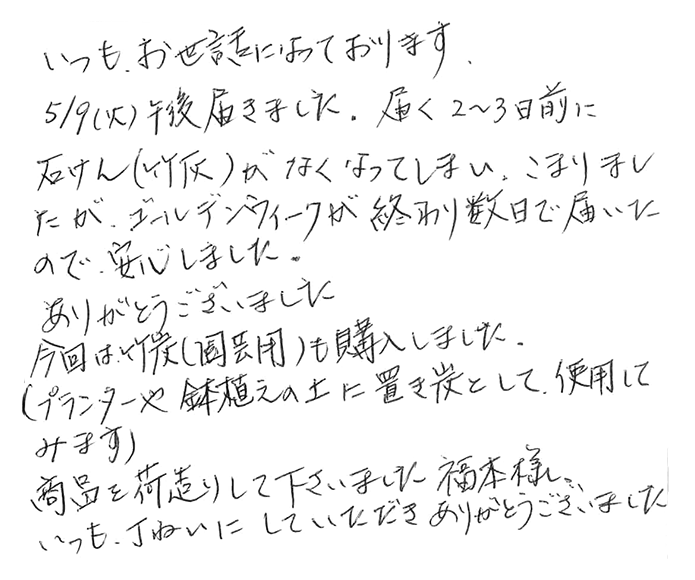 いつも、お世話になっております、
5/9(火)午後届きました。届く2〜3日前に
石けん(竹灰)がなくなってしまい、こまりまし
たが、ゴールデンウィークが終わり数日で届いた
ので、安心しました。
ありがとうございました
今回は、竹炭(園芸用)も購入しました。
(プランターや鉢植えの土に置き炭として、使用して
みます)
商品を荷造りして下さいました福本様し、
いつも、丁ねいにしていただきありがとうございました